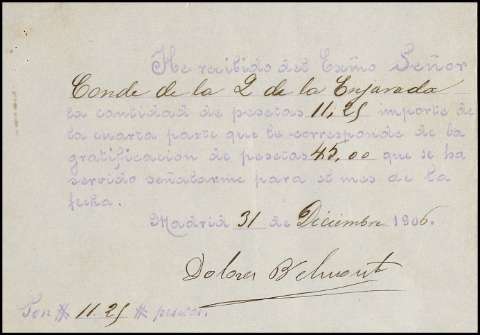 He recibido del Exmo Señor
Conde de la Q de la Enjarada
la cantidad de pesetas 11,25 importe de
la cuarta parte que le corresponde de la
gratificacion de pesetas 45,00 que se ha
servido señalarme para el mes de la
fecha.
Madrid 31 de Diciembre 1906.
Dolores Belmont
Son # 11 25 # pesetas.